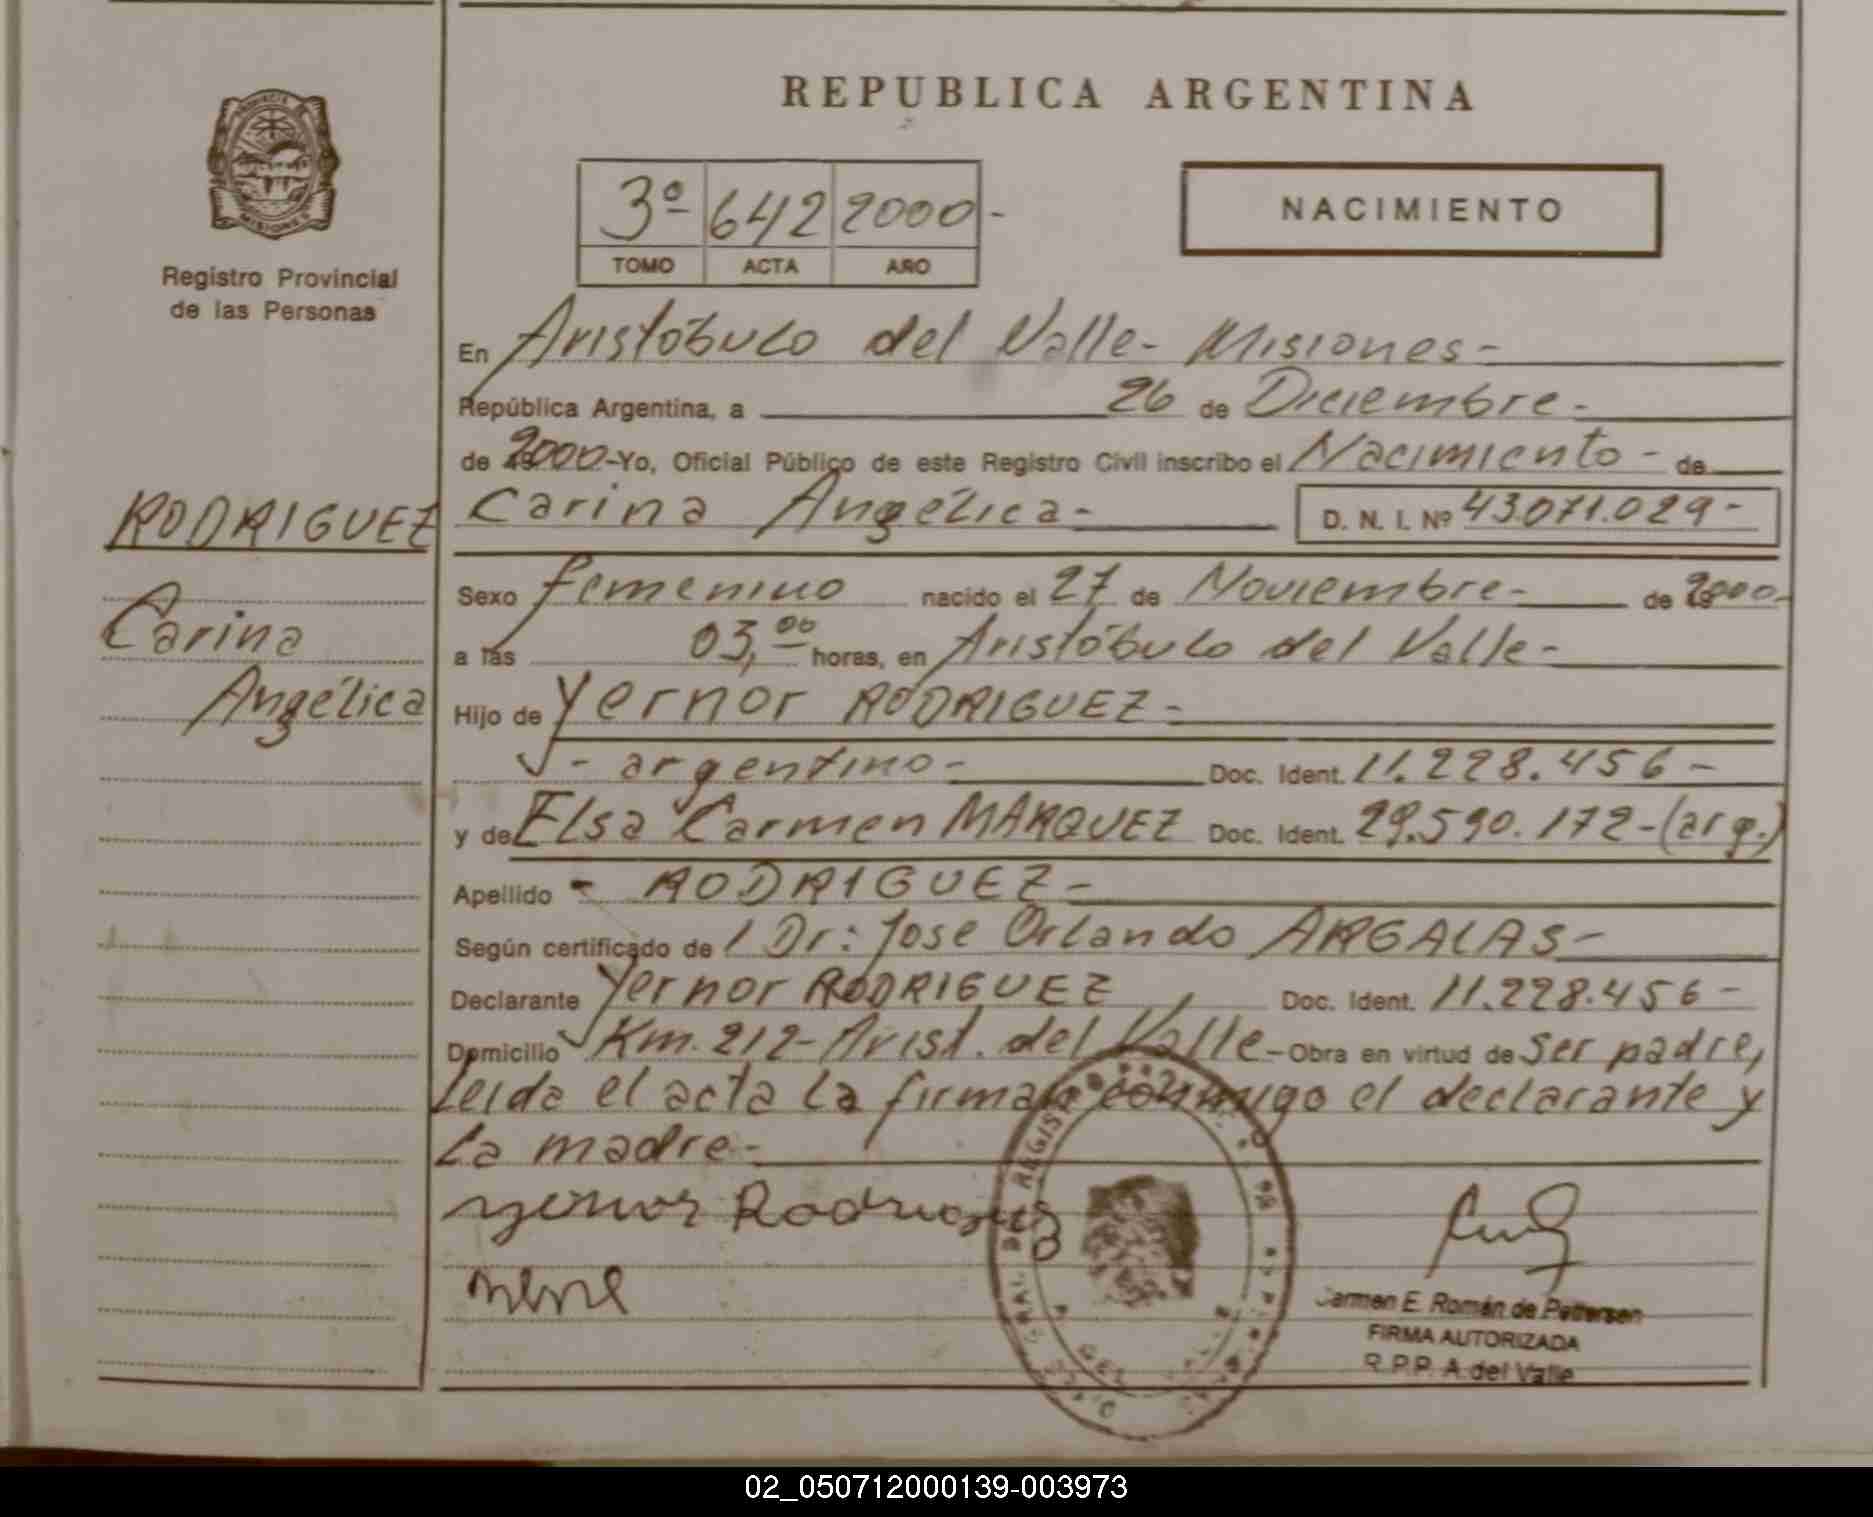 REPUBLICA ARGENTINA
MISIONES
Registro Provincial
de las Personas
3º 642 2000-
TOMO ACTA AÑO
NACIMIENTO
En Aristóbulo del Valle- Misiones-
República Argentina, a 26 de Diciembre-
de 2000-Yo, Oficial Público de este Registro Civil inscribo el Nacimiento- de
RODRIGUEZ
Carina Angélica- D. N. I. Nº 43.071.029-
Sexo femenino nacido el 27 de Noviembre- de 2000-
Carina
a las 03,00 horas, en Aristóbulo del Valle-
Angélica
Hijo de Yernor RODRIGUEZ-
- argentino- Doc. Ident. 11.228.456-
y de Elsa Carmen MARQUEZ Doc. Ident. 29.590.172-(arg.)
Apellido - RODRIGUEZ-
Según certificado de Dr: Jose Orlando ARGALAS-
Declarante Yernor RODRIGUEZ Doc. Ident. 11.228.456-
Domicilio Km. 212-Arist. del Valle-Obra en virtud de ser padre,
Leida el acta la firman conmigo el declarante y
la madre-
Yernor Rodriguez
Carmen E. Román de Pettersen
FIRMA AUTORIZADA
R.P.P. A. del Valle
02_050712000139-003973